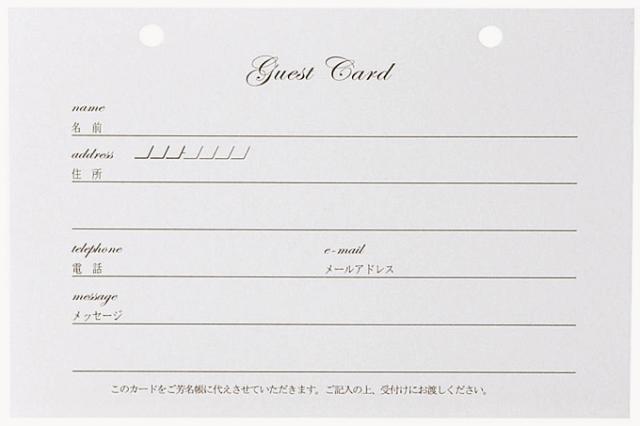 Guest Card
name
名 前
address
住 所
telephone e-mail
電 話 メールアドレス
message
メッセージ
このカードをご芳名帳に代えさせていただきます。ご記入の上、受付けにお渡しください。